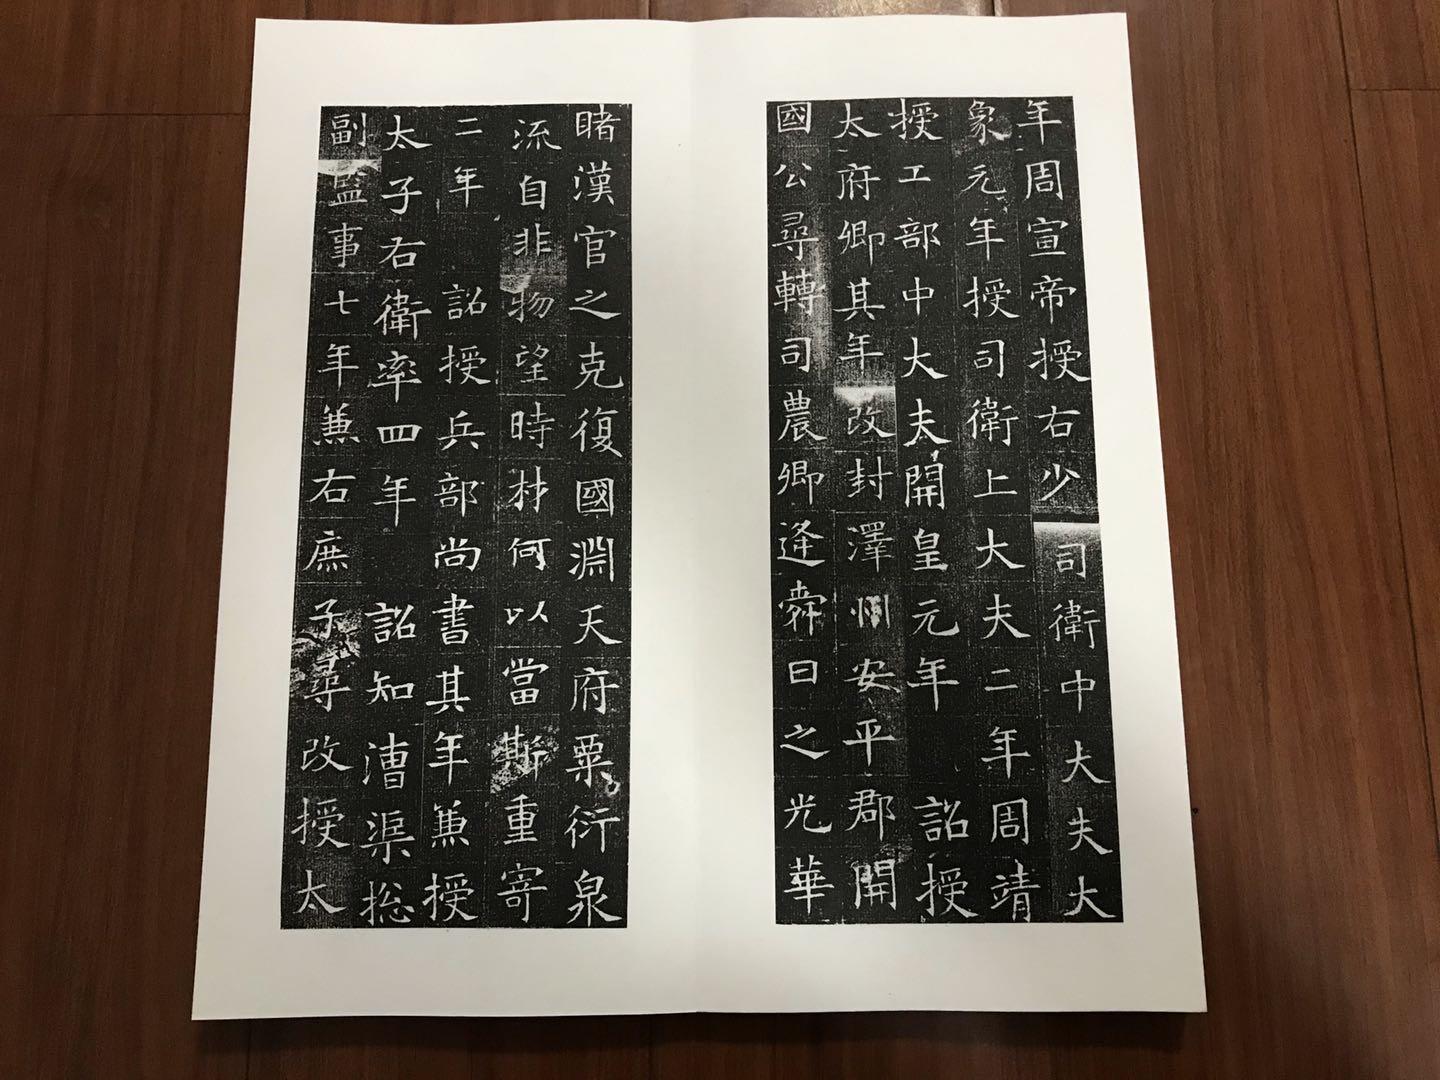 年周宣帝授右少司衛中大夫大
象元年授司衛上大夫二年周靖
授工部中大夫開皇元年詔授
太府卿其年改封澤州安平郡開
國公尋轉司農卿逢舜日之光華
睹漢官之克復國淵天府粟衍泉
流自非物望時材何以當斯重寄
二年詔授兵部尚書其年兼授
太子右衛率四年詔知漕渠総
副監事七年兼右庶子尋改授太